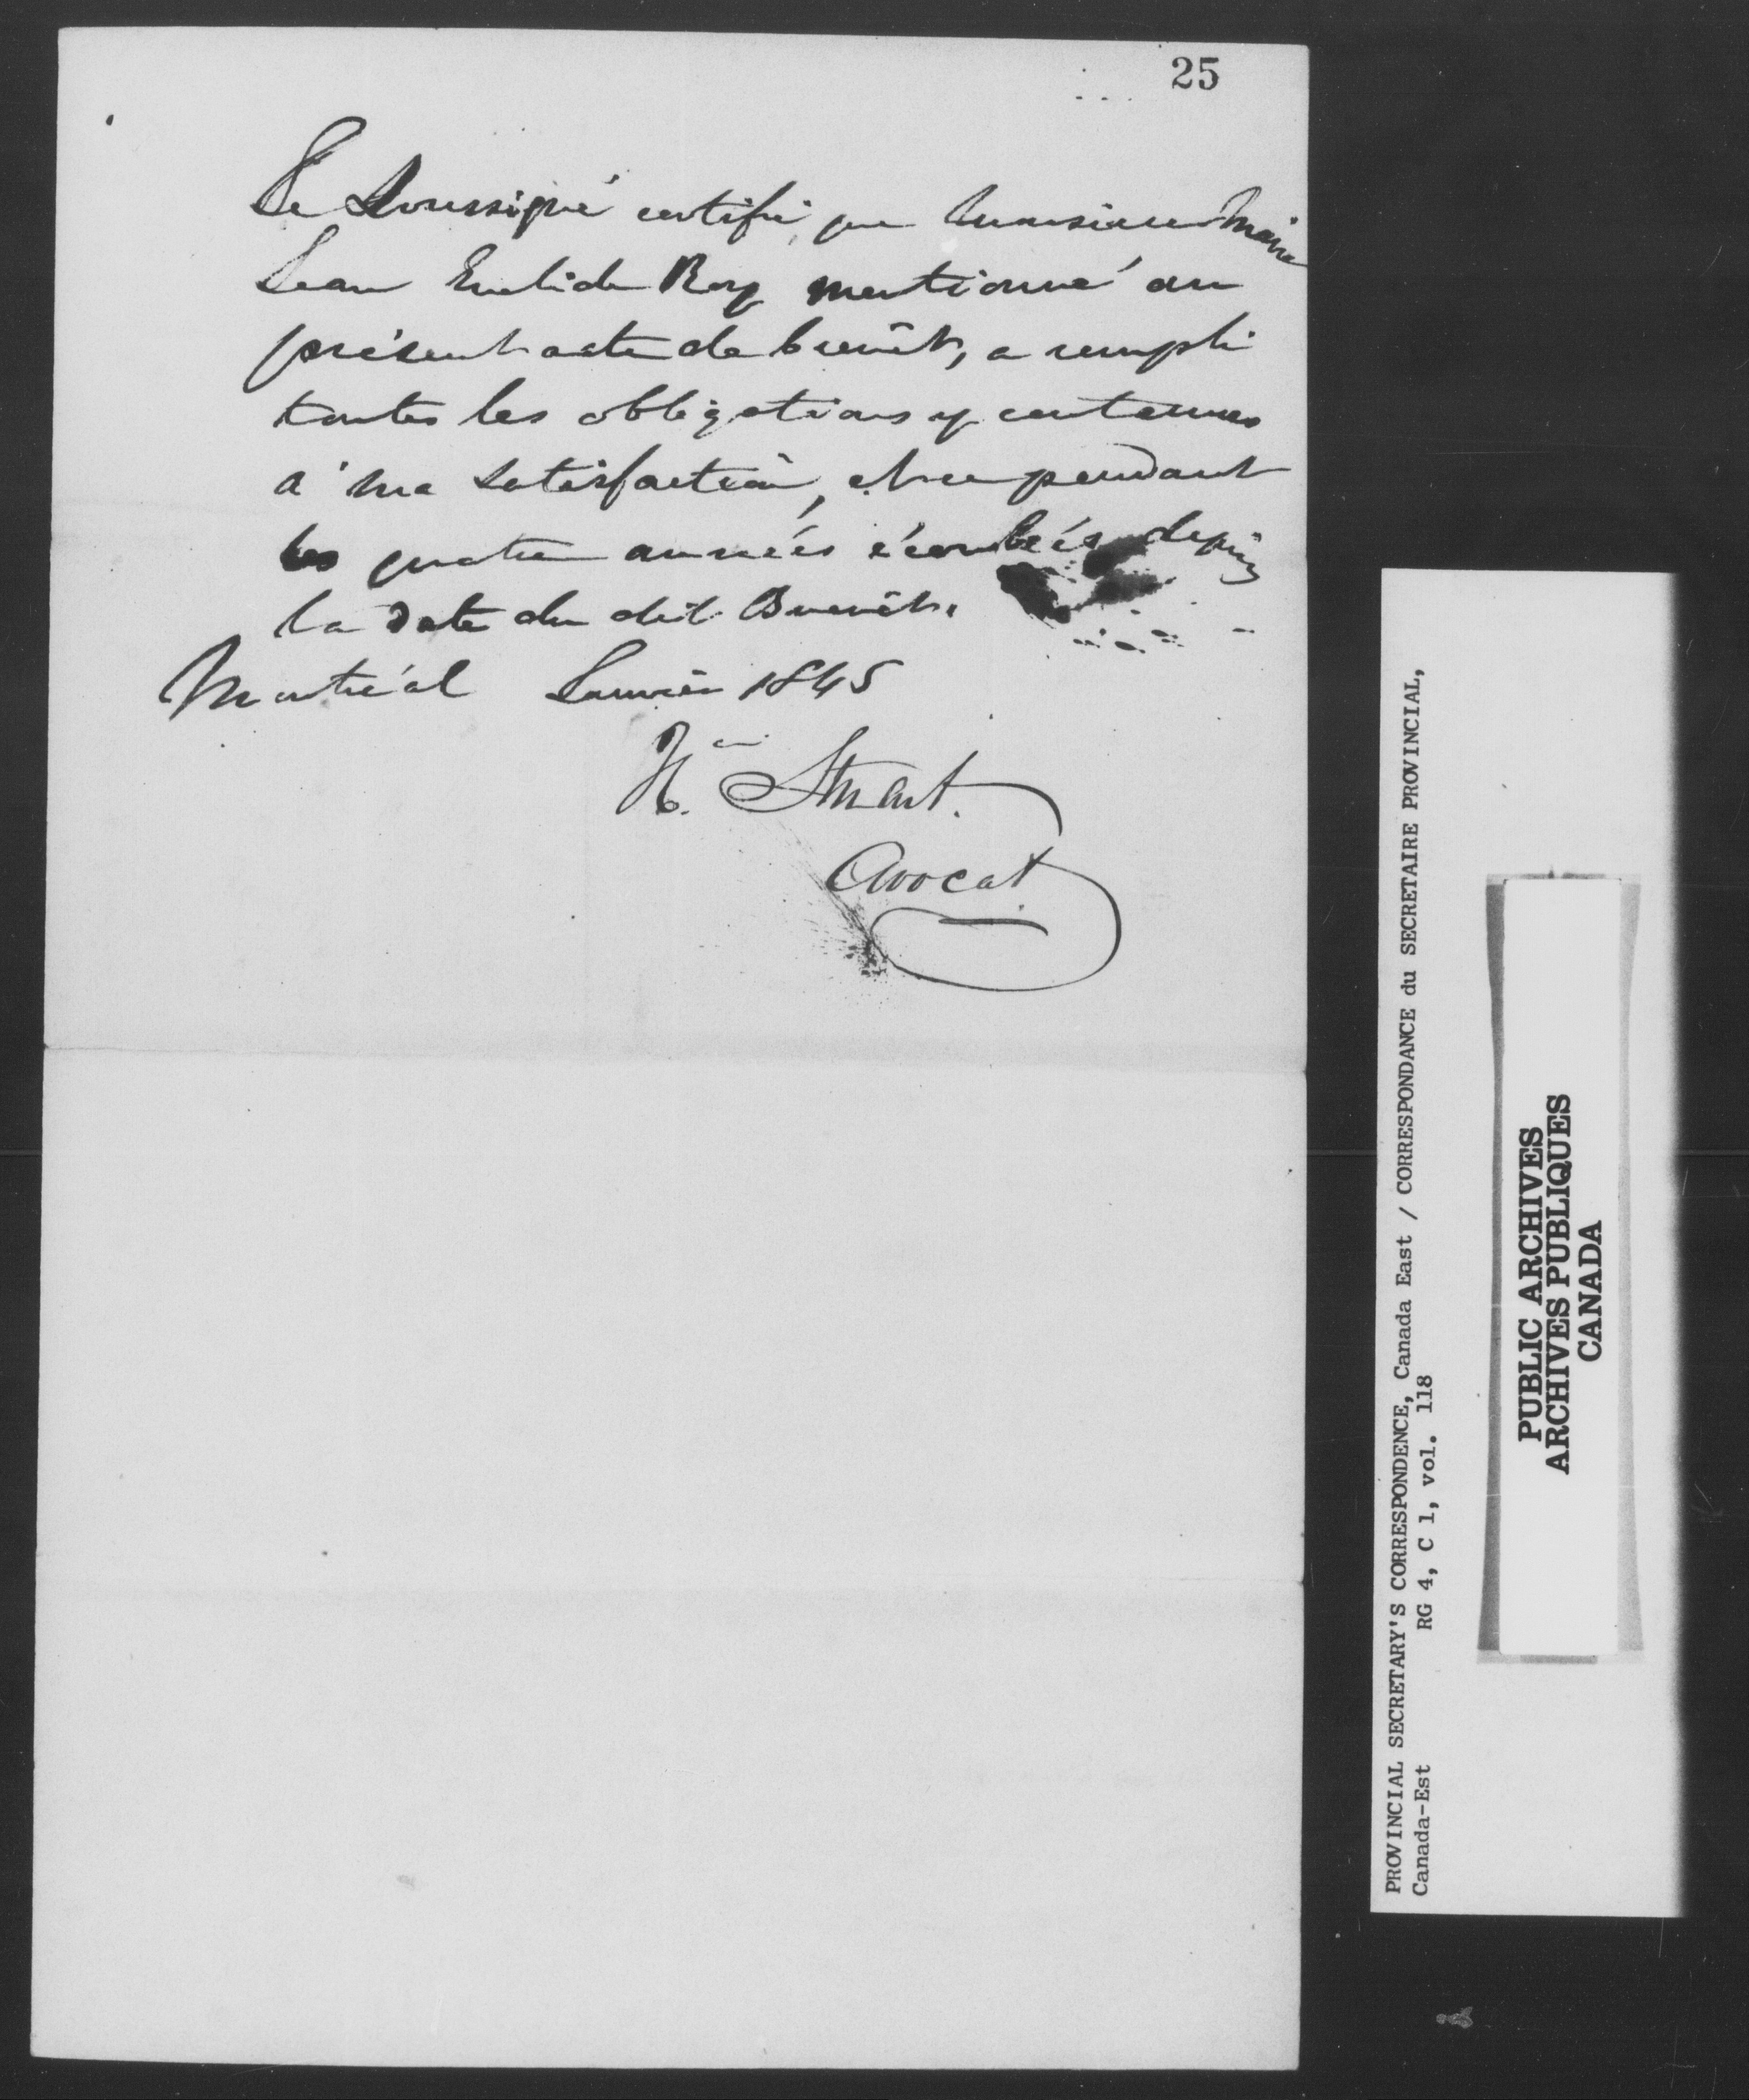 25
Je Soussigné certifie que Monsieur Marie
Jean Euclide Roy mentionné au
présent acte de brevêt, a rempli
toutes les obligations y contenues
à ma satisfaction, et ce pendant
les quatre années écoulées depuis
la date du dit Brevêt.
Montréal Janvier 1845
Hy. Stuart.
Avocat
PROVINCIAL SECRETARY'S CORRESPONDENCE, Canada East / CORRESPONDANCE du SECRETAIRE PROVINCIAL,
Canada-Est RG 4, C 1, vol. 118
PUBLIC ARCHIVES
ARCHIVES PUBLIQUES
CANADA